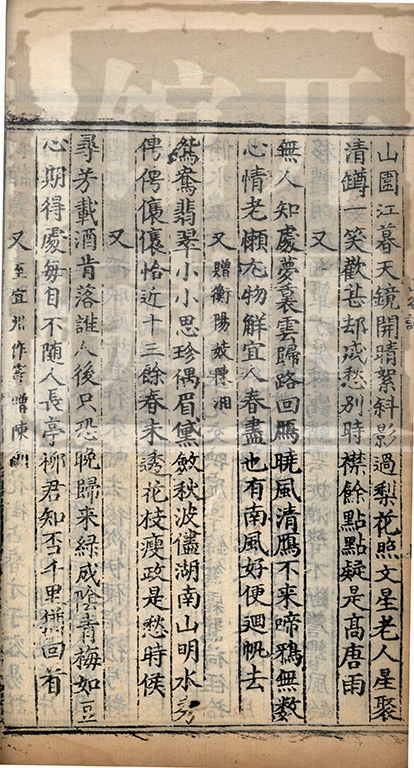 山圍江暮天鏡開晴絮斜影過梨花照文星老人星聚
清鐏一笑歡甚却成愁別時襟餘點點疑是髙唐雨
又
無人知處夢裏雲歸路回鴈曉風清鴈不来啼鴉無數
心情老懶尤物解宜人春盡也有南風好便迴帆去
又 贈衡陽妓陳湘
鴛鴦翡翠小小思珍偶眉黛斂秋波儘湖南山明水秀
俜俜儴儴恰近十三餘春未透花枝瘦政是愁時候
又
尋芳載酒肯落誰人後只恐晚歸来緑成陰青梅如豆
心期得處每自不随人長亭栁君知否千里猶回首
又 至宜州作寄贈陳湘